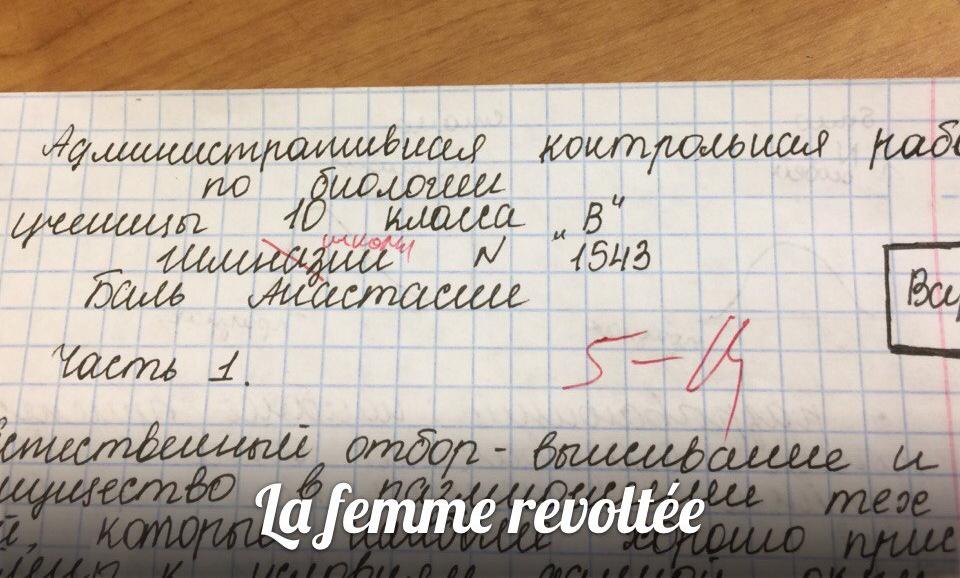 Административная контрольная рабо
по биологии
ученицы 10 класса „В“
гимназии школы N 1543
Баль Анастасии
Вар
Часть 1.
5-
естественный отбор - выживание и
мущество в размножении тех
й, которые наиболее хорошо прис
La femme revoltée
к условиям данной